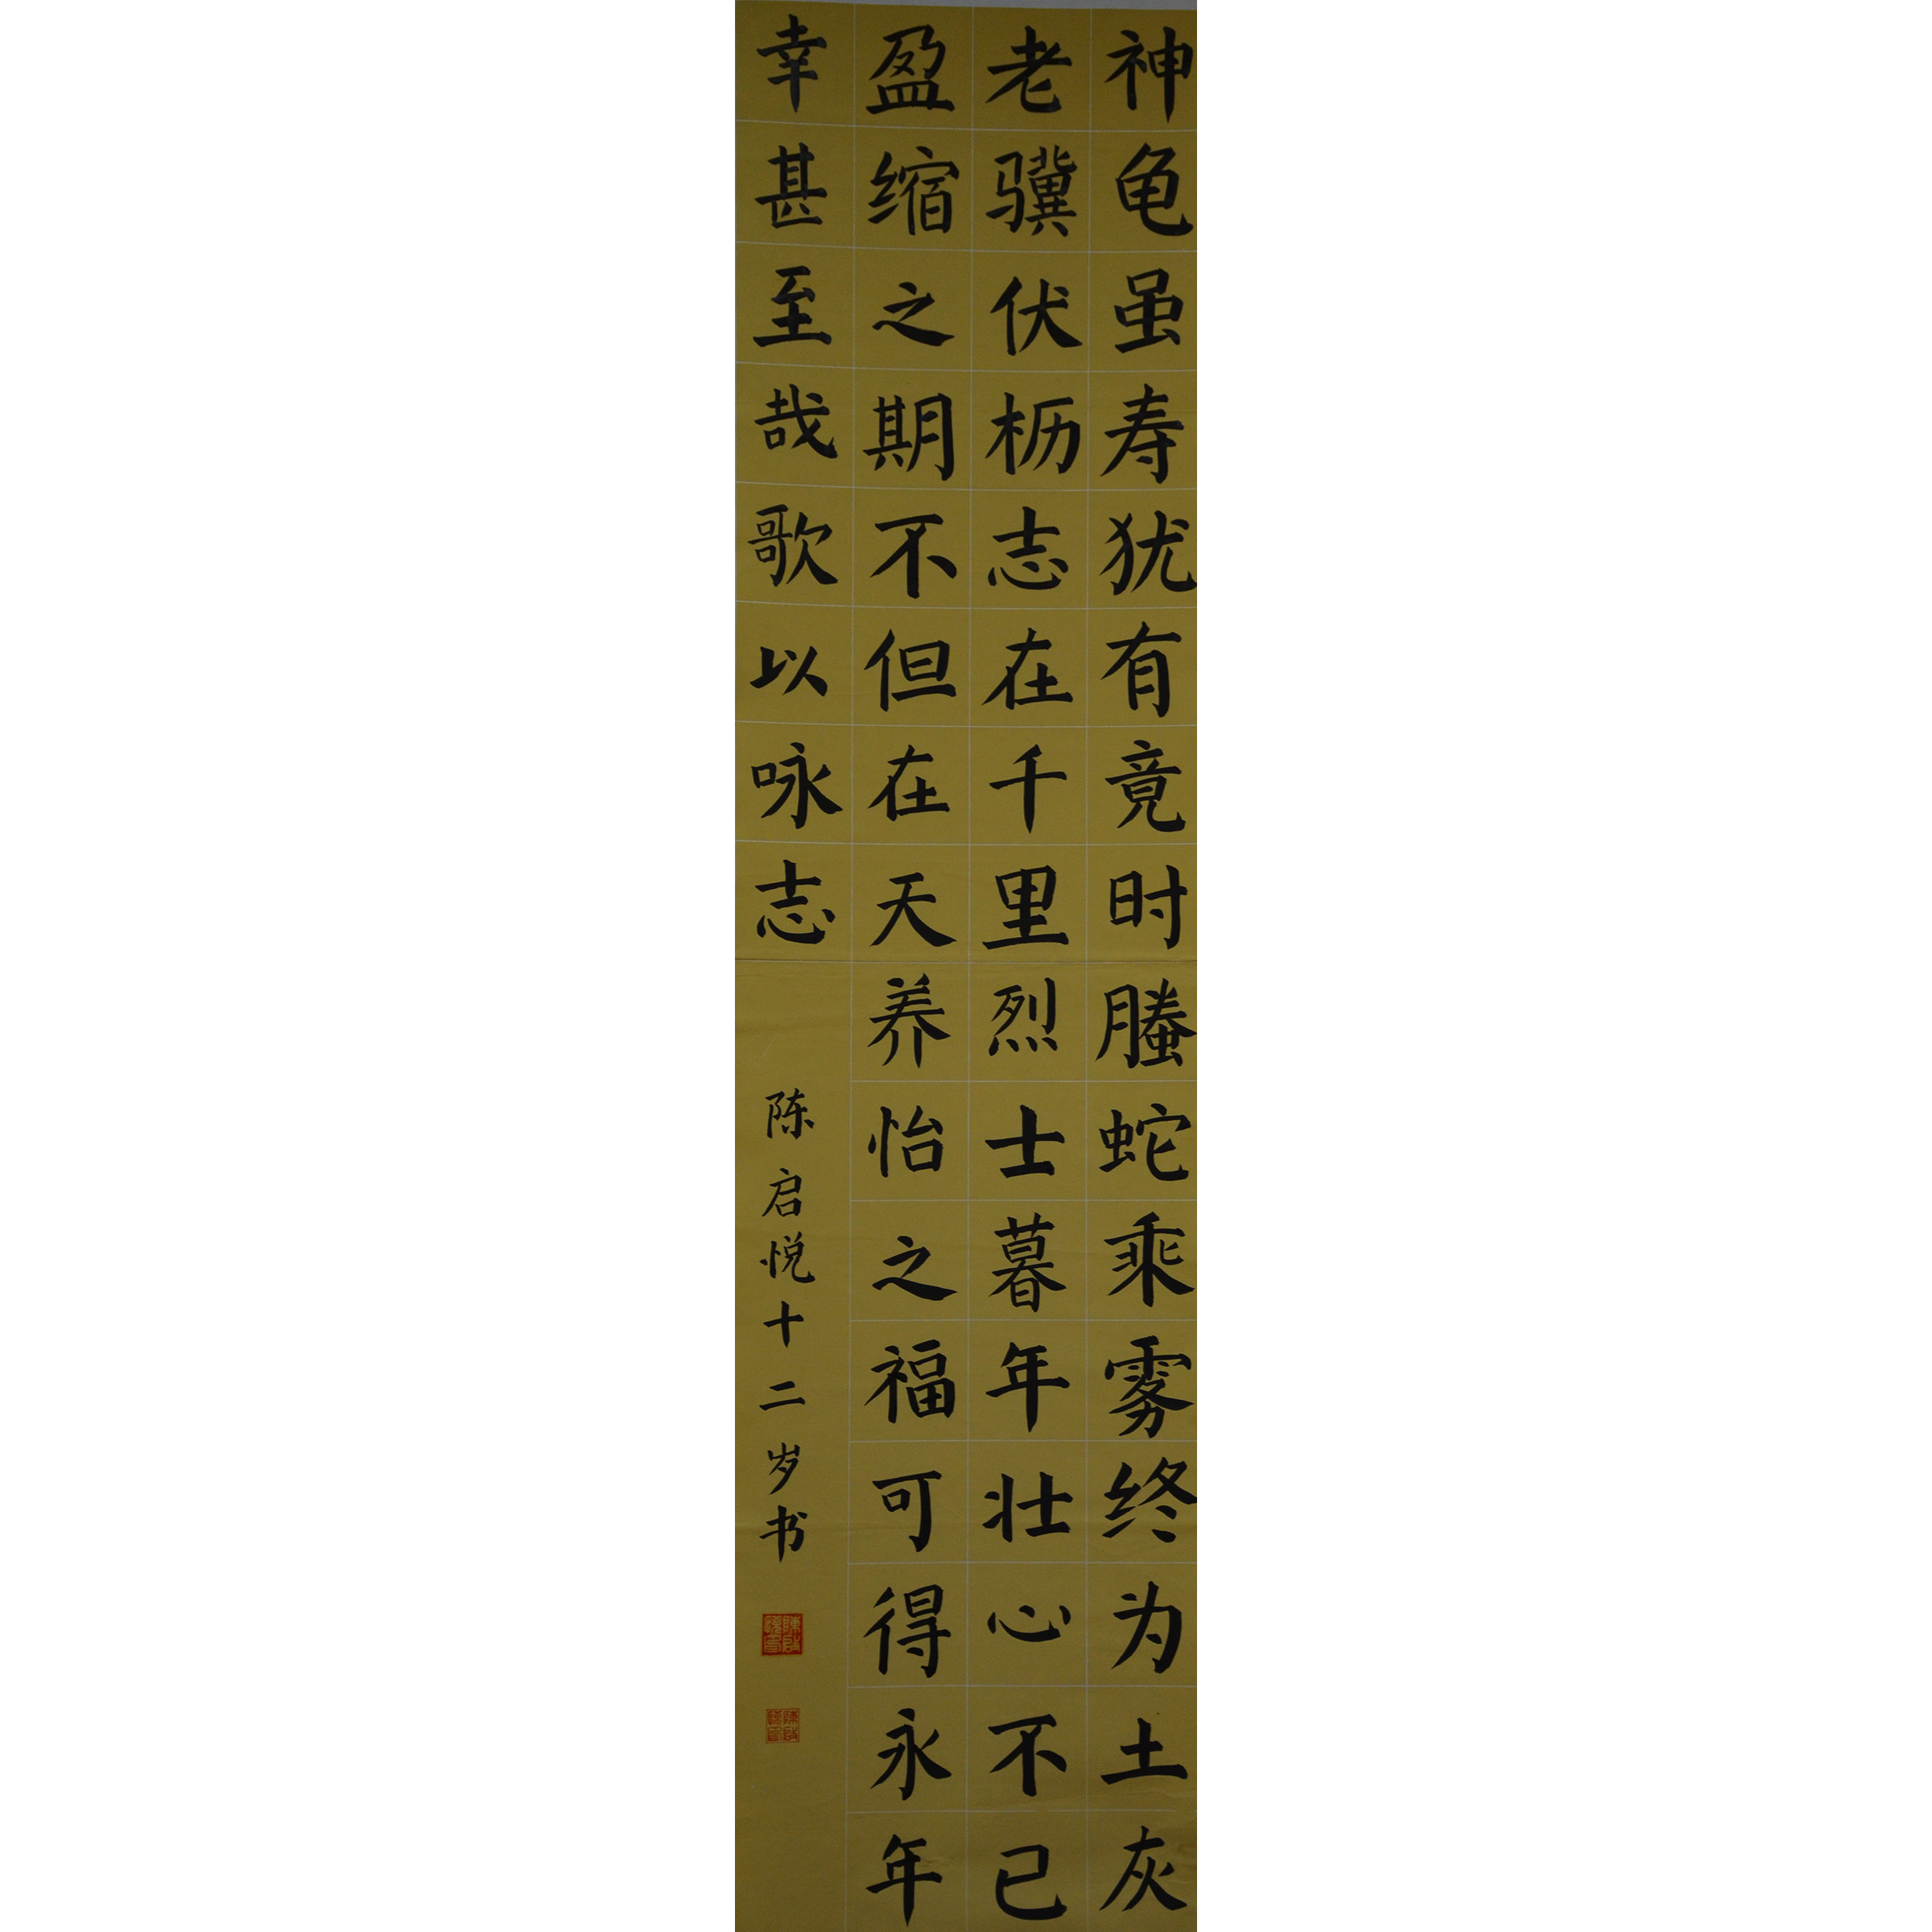 神龟虽寿犹有竟时螣蛇乘雾终为土灰
老骥伏枥志在千里烈士暮年壮心不已
盈缩之期不但在天养怡之福可得永年
幸甚至哉歌以咏志
陈启悦十二岁书